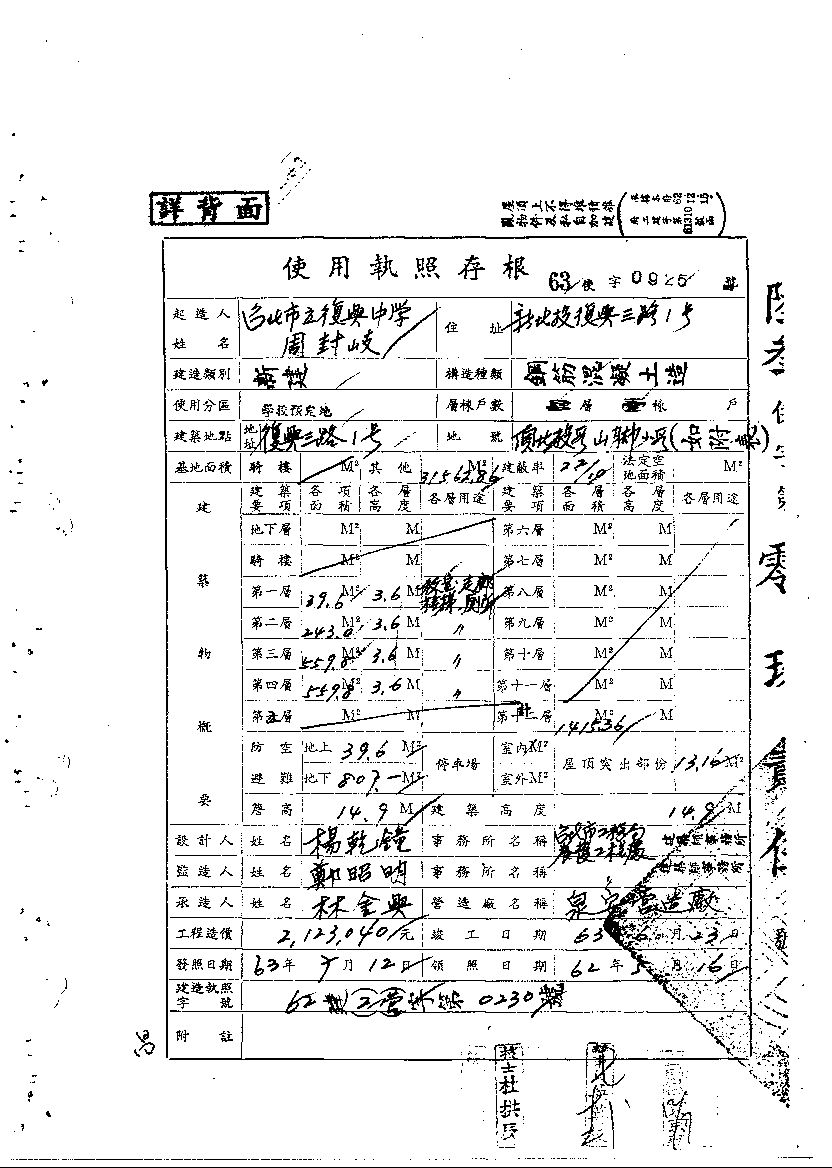 詳背面
屋頂上不得堆積雜
使用執照存根 63使字0925號
起造人姓名 台北市立復興中学 周封岐 住址 新北投復興三路1号
建造類別 新建 構造種類 鋼筋混凝土造
使用分區 學校預定地 層棟戶數 層 棟 戶
建築地點 地址 復興三路1号 地號 頂北投段山腳小段(如附表)
基地面積 騎樓 M² 其他 31563.86 M² 建蔽率 法定空地面積 M²
建築物概要 建築要項 各項面積 各層高度 各層用途 建築要項 各層面積 各層高度 各層用途
地下層 M² M 第六層 M² M
騎樓 M² M 第七層 M² M
第一層 39.6 M² 3.6 M 第八層 M² M
第二層 243.0 M² 3.6 M 〃 第九層 M² M
第三層 559.8 M² 3.6 M 〃 第十層 M² M
第四層 559.8 M² 3.6 M 〃 第十一層 M² M
第五層 M² M 計 1415.36 M² M
防空避難 地上 39.6 M² 停車場 室內 M² 屋頂突出部份 13.16 M²
地下 807.- M² 室外 M²
簷高 14.9 M 建築高度 14.9 M
設計人 姓名 楊乾鐘 事務所名稱 台北市工務局
監造人 姓名 鄭昭明 事務所名稱
承造人 姓名 林金興 營造廠名稱 營造廠
工程造價 2,123,040元 竣工日期 63年6月23日
發照日期 63年7月12日 領照日期 62年5月16日
建造執照字號 62 0230號
附註